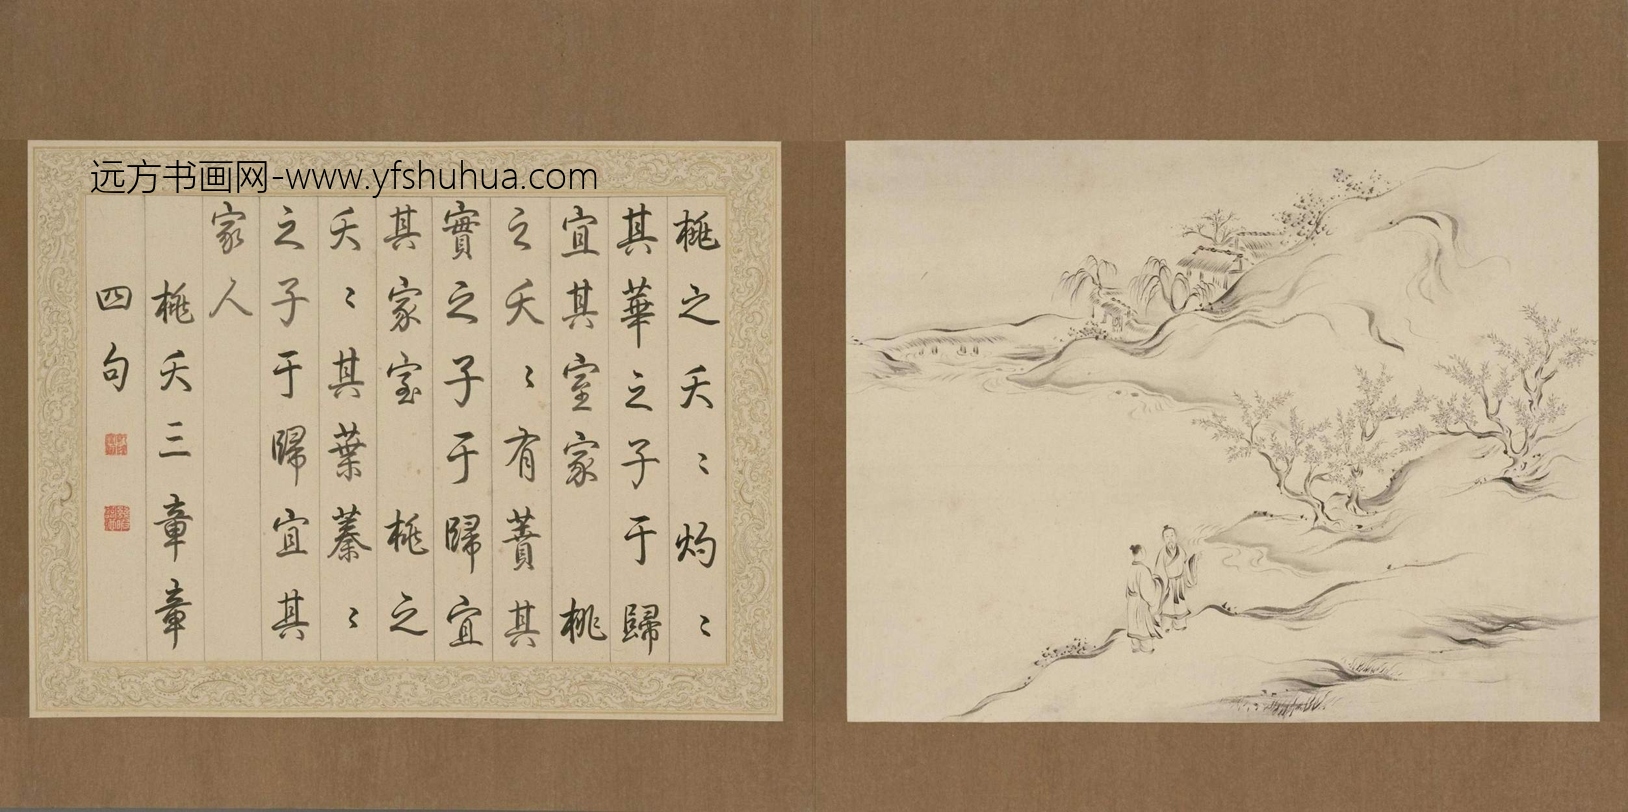 远方书画网-www.yfshuhua.com
桃之夭〻灼〻
其華之子于歸
宜其室家　桃
之夭〻有蕡其
實之子于歸宜
其家室　桃之
夭〻其葉蓁〻
之子于歸宜其
家人
桃夭三章章
四句